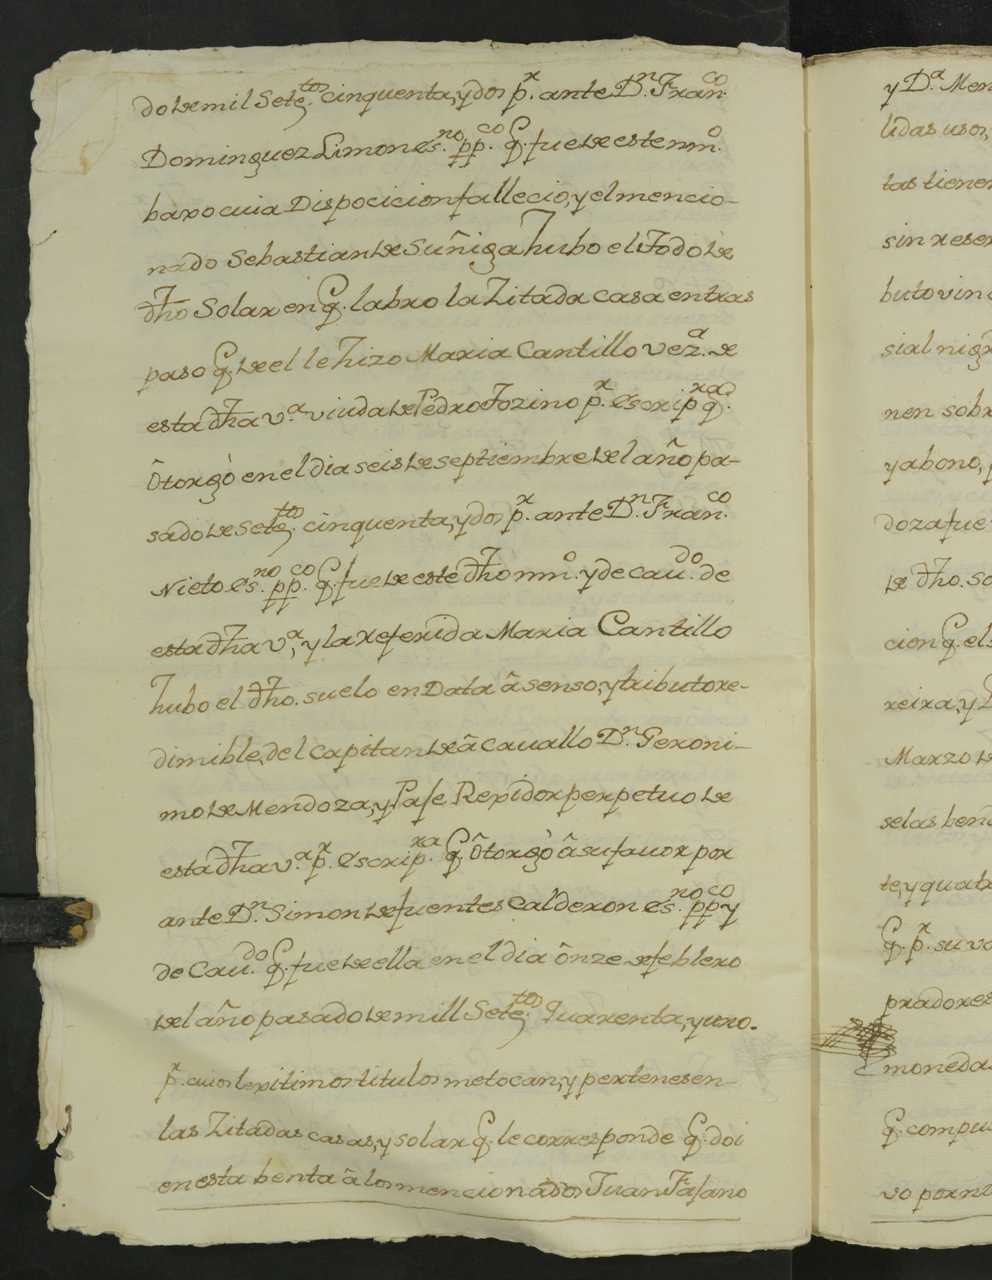 do de mil Setes.tos cinquenta, y dos p.r ante D.n Fran.co
Dominguez Limon es.no pp.co q. fue de este nm.o
baxo cuia Dispocicion fallecio, y el mencio-
nado Sebastian de Suñiga hubo el Todo de
dho Solar en q. labro la Zitada casa en tras
paso q. de el le hizo Maria Cantillo vez.a de
esta dha v.a viuda de Pedro Tozino p.r escrip.ra q.
ôtorgò en el dia seis de septiembre de l año pa-
sado de Sete.tos cinquenta, y dos p.r ante D.n Fran.co
Nieto es.no pp.co q. fue de este dho nm.o y de cau.do de
esta dha v.a, y la referida Maria Cantillo
hubo el dho. suelo en Data â senso, y tributo re-
dimible, del capitan de â cauallo D.n Geroni-
mo de Mendoza, y Pase Rexidor perpetuo de
esta dha v.a p.r escrip.ra q. ôtorgò â su fauor por
ante D.n Simon de fuentes Calderon es.no pp.co y
de Cau.do q. fue de ella en el dia ônze de feblero
de l año pasado de mill Sete.tos quarenta, y uno.
p.r cuios lexitimos titulos me tocan, y pertenesen
las Zitadas casas, y solar q. le corresponde q. doi
en esta benta â los mencionados Juan Fasano
y D.a Men
lidas usos,
tas tienen
sin reser
buto vinc
sial nig
nen sobr
y abono,
doza fue
de dho. so
cion q. el
reira, y
Marzo de
selas ben
te, y quatr
q. p.r su va
pradores
moneda
q. compu
vo por